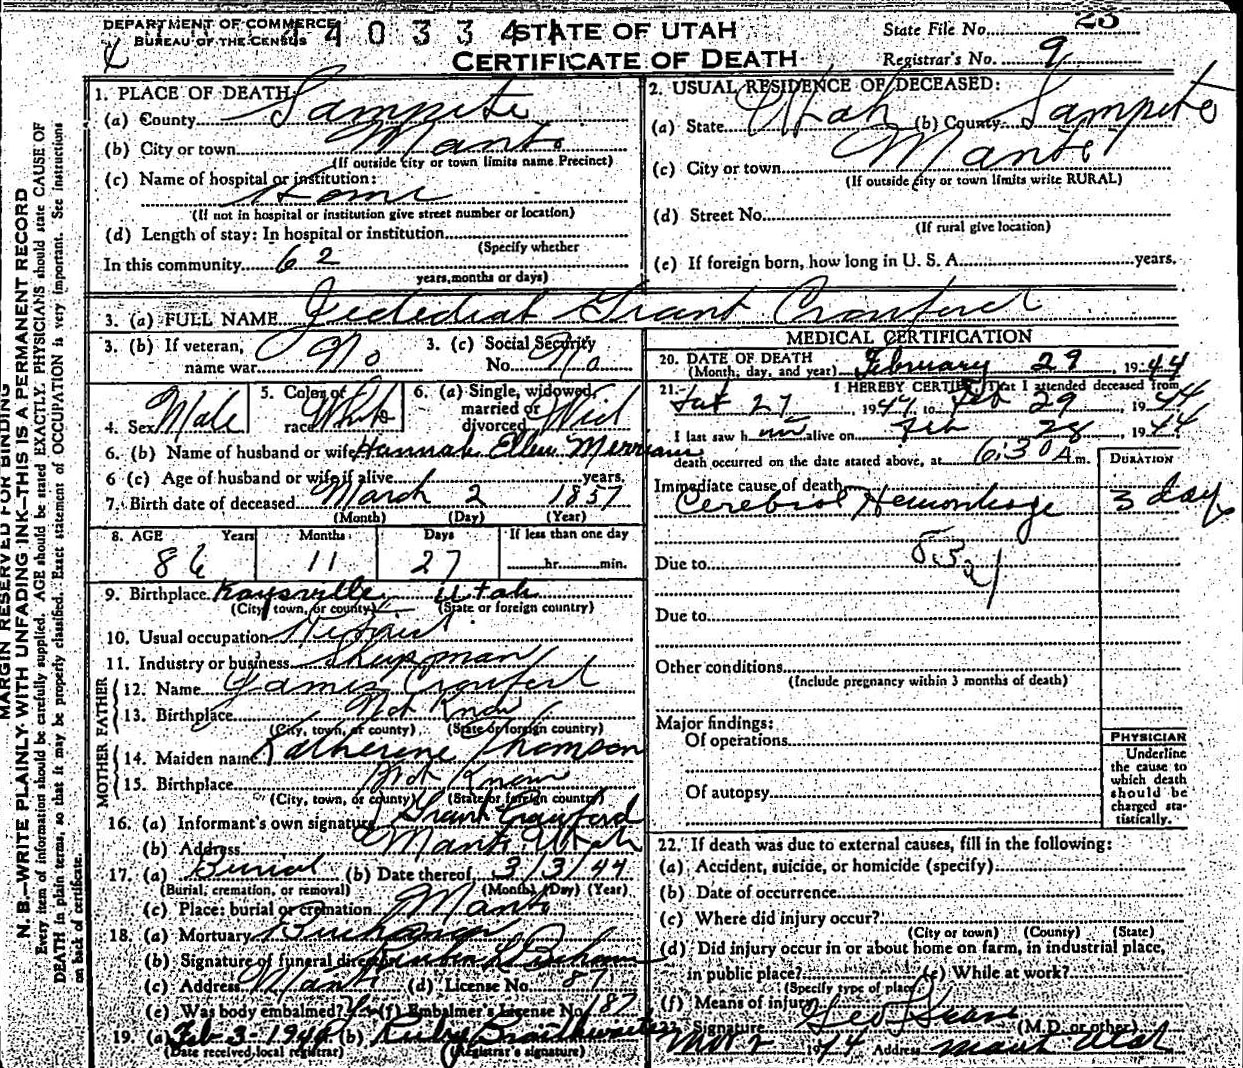 DEPARTMENT OF COMMERCE
BUREAU OF THE CENSUS
4 4 0 3 3 4
STATE OF UTAH
CERTIFICATE OF DEATH
State File No. 25
Registrar's No. 9
MARGIN RESERVED FOR BINDING
N. B.—WRITE PLAINLY, WITH UNFADING INK—THIS IS A PERMANENT RECORD
Every item of information should be carefully supplied. AGE should be stated EXACTLY. PHYSICIANS should state CAUSE OF
DEATH in plain terms, so that it may be properly classified. Exact statement of OCCUPATION is very important. See instructions
on back of certificate.
1. PLACE OF DEATH:
(a) County Sanpete
(b) City or town Manti
(If outside city or town limits name Precinct)
(c) Name of hospital or institution:
Home
(If not in hospital or institution give street number or location)
(d) Length of stay: In hospital or institution
(Specify whether
In this community 62
years, months or days)
2. USUAL RESIDENCE OF DECEASED:
(a) State Utah (b) County Sanpete
(c) City or town Manti
(If outside city or town limits write RURAL)
(d) Street No.
(If rural give location)
(e) If foreign born, how long in U. S. A. years.
3. (a) FULL NAME Jedediah Grant Crawford
3. (b) If veteran, name war No
3. (c) Social Security No. No
4. Sex Male
5. Color or race White
6. (a) Single, widowed, married or divorced Wid
6. (b) Name of husband or wife Hannah Ellen Merriam
6 (c) Age of husband or wife if alive years.
7. Birth date of deceased March 2 1857
(Month) (Day) (Year)
8. AGE Years Months Days If less than one day
86 11 27 hr. min.
9. Birthplace Kaysville, Utah
(City, town, or county) (State or foreign country)
10. Usual occupation Retired
11. Industry or business Sheepman
FATHER
12. Name James Crawford
13. Birthplace Not Know
(City, town, or county) (State or foreign country)
MOTHER
14. Maiden name Katherine Thomson
15. Birthplace Not Know
(City, town, or county) (State or foreign country)
16. (a) Informant's own signature Grant Crawford
(b) Address Manti Utah
17. (a) Burial (b) Date thereof 3/3/44
(Burial, cremation, or removal) (Month) (Day) (Year)
(c) Place: burial or cremation Manti
18. (a) Mortuary
(b) Signature of funeral director
(c) Address Manti (d) License No. 87
(e) Was body embalmed? (f) Embalmer's License No. 187
19. (a) Feb 3-1944 (b) Ruby Braithwaite
(Date received local registrar) (Registrar's signature)
MEDICAL CERTIFICATION
20. DATE OF DEATH
(Month, day, and year) February 29, 1944
21. I HEREBY CERTIFY, That I attended deceased from
27, 1944, to Feb 29 1944
I last saw him alive on Feb 28, 1944
death occurred on the date stated above, at 6:30 A.m.
DURATION
Immediate cause of death
Cerebral Hemorrhage 3 days
Due to
Due to
Other conditions
(Include pregnancy within 3 months of death)
Major findings:
Of operations
Of autopsy
PHYSICIAN
Underline
the cause to
which death
should be
charged sta-
tistically.
22. If death was due to external causes, fill in the following:
(a) Accident, suicide, or homicide (specify)
(b) Date of occurrence
(c) Where did injury occur?
(City or town) (County) (State)
(d) Did injury occur in or about home on farm, in industrial place,
in public place? (e) While at work?
(Specify type of place)
(f) Means of injury
Signature (M.D. or other)
Mar 2 1944 Address Manti Utah